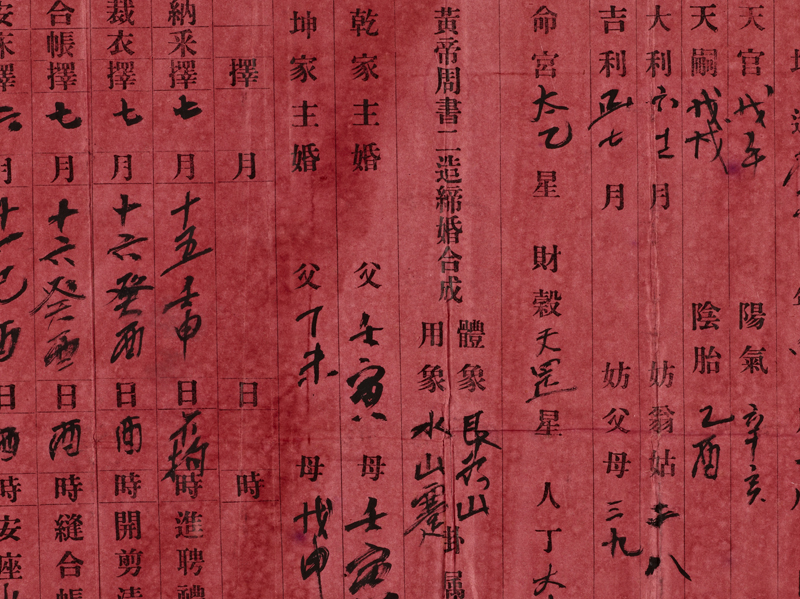 天官戊午 陽氣辛亥
天嗣戊戌 陰胎乙酉
大利六十二月 妨翁姑二八
吉利正七月 妨父母三九
命宮太乙星 財穀天罡星 人丁太
黃帝周書二造締婚合成
體象艮為山
用象水山蹇
卦屬
乾家主婚 父壬寅 母壬寅
坤家主婚 父丁未 母戊申
擇 月 日 時
納采擇七月十五壬申日 時進聘禮
裁衣擇七月十六癸酉日酉時開剪
合帳擇七月十六癸酉日酉時縫合帳
安床擇六月十一己酉日酉時安座